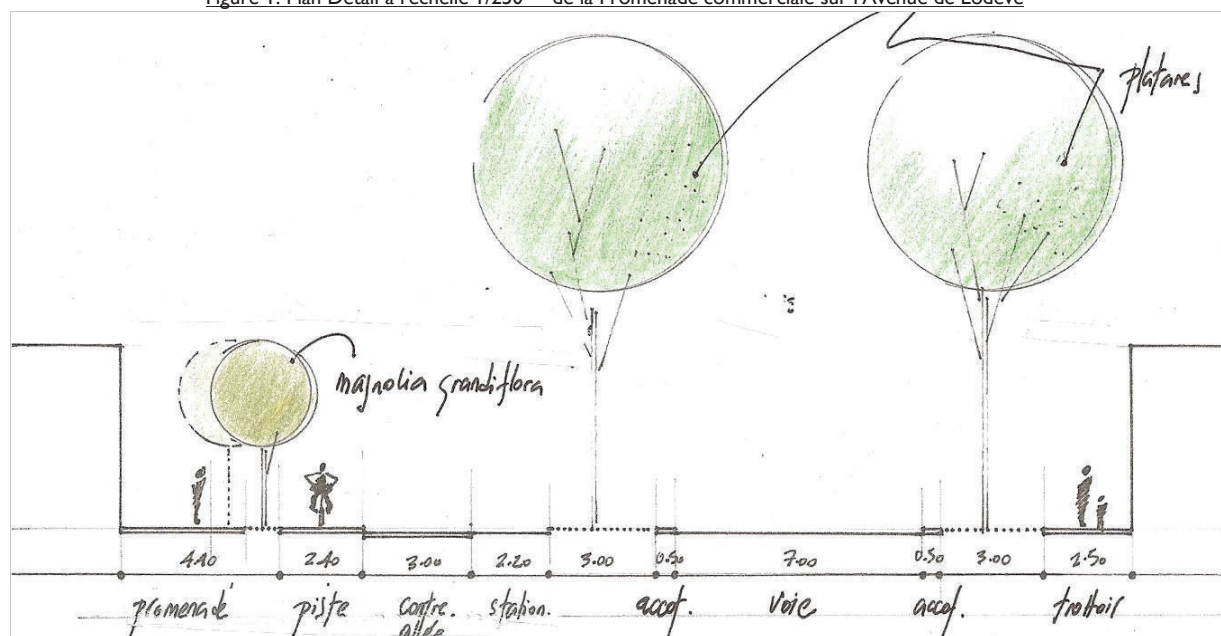 Figure 1: Plan Détail à l'échelle 1/250 de la Promenade commerciale sur l'Avenue de Lodève
platanes
magnolia grandiflora
4.40 2.40 3.00 2.20 3.00 0.50 7.00 0.50 3.00 2.50
promenade piste contre. station. accot. voie accot. trottoir
allée